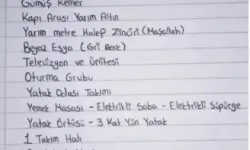 Gümüş Kemer
Kapı Arası Yarım Altın
Yarım metre Halep Zinciri (Maşallah)
Beyaz Eşya (Gri Renk)
Televizyon ve Ünitesi
Oturma Grubu
Yatak Odası Takımı
Yemek Masası - Elektrikli Soba - Elektrikli Süpürge
Yatak Örtüsü - 3 Kat Yün Yatak
1 Takım Halı